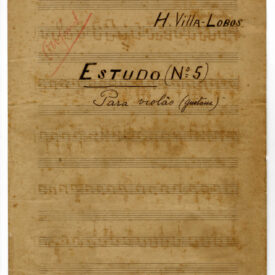 Original
H. VILLA-LOBOS
ESTUDO (Nº 5)
Para violão (guitare)